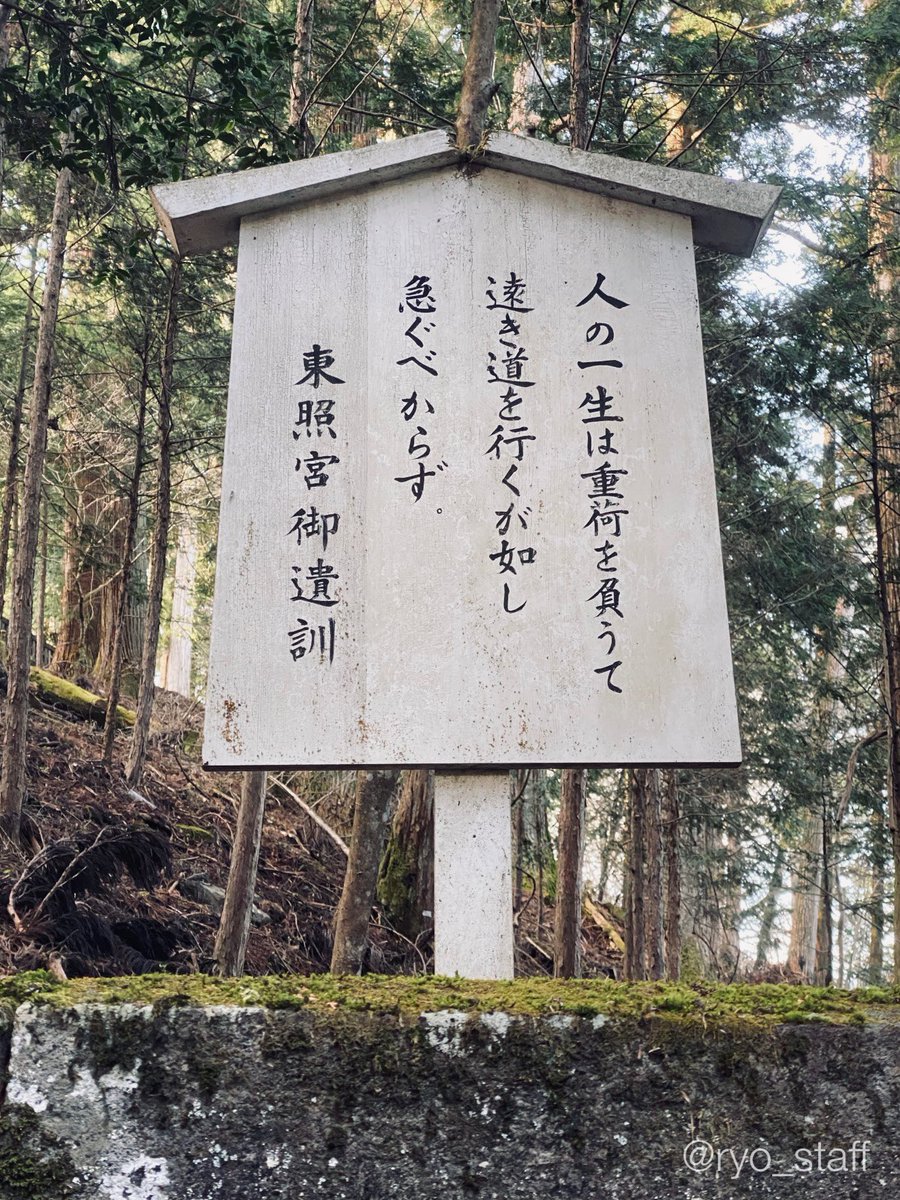 人の一生は重荷を負うて
遠き道を行くが如し
急ぐべからず。
東照宮御遺訓
@ryo_staff